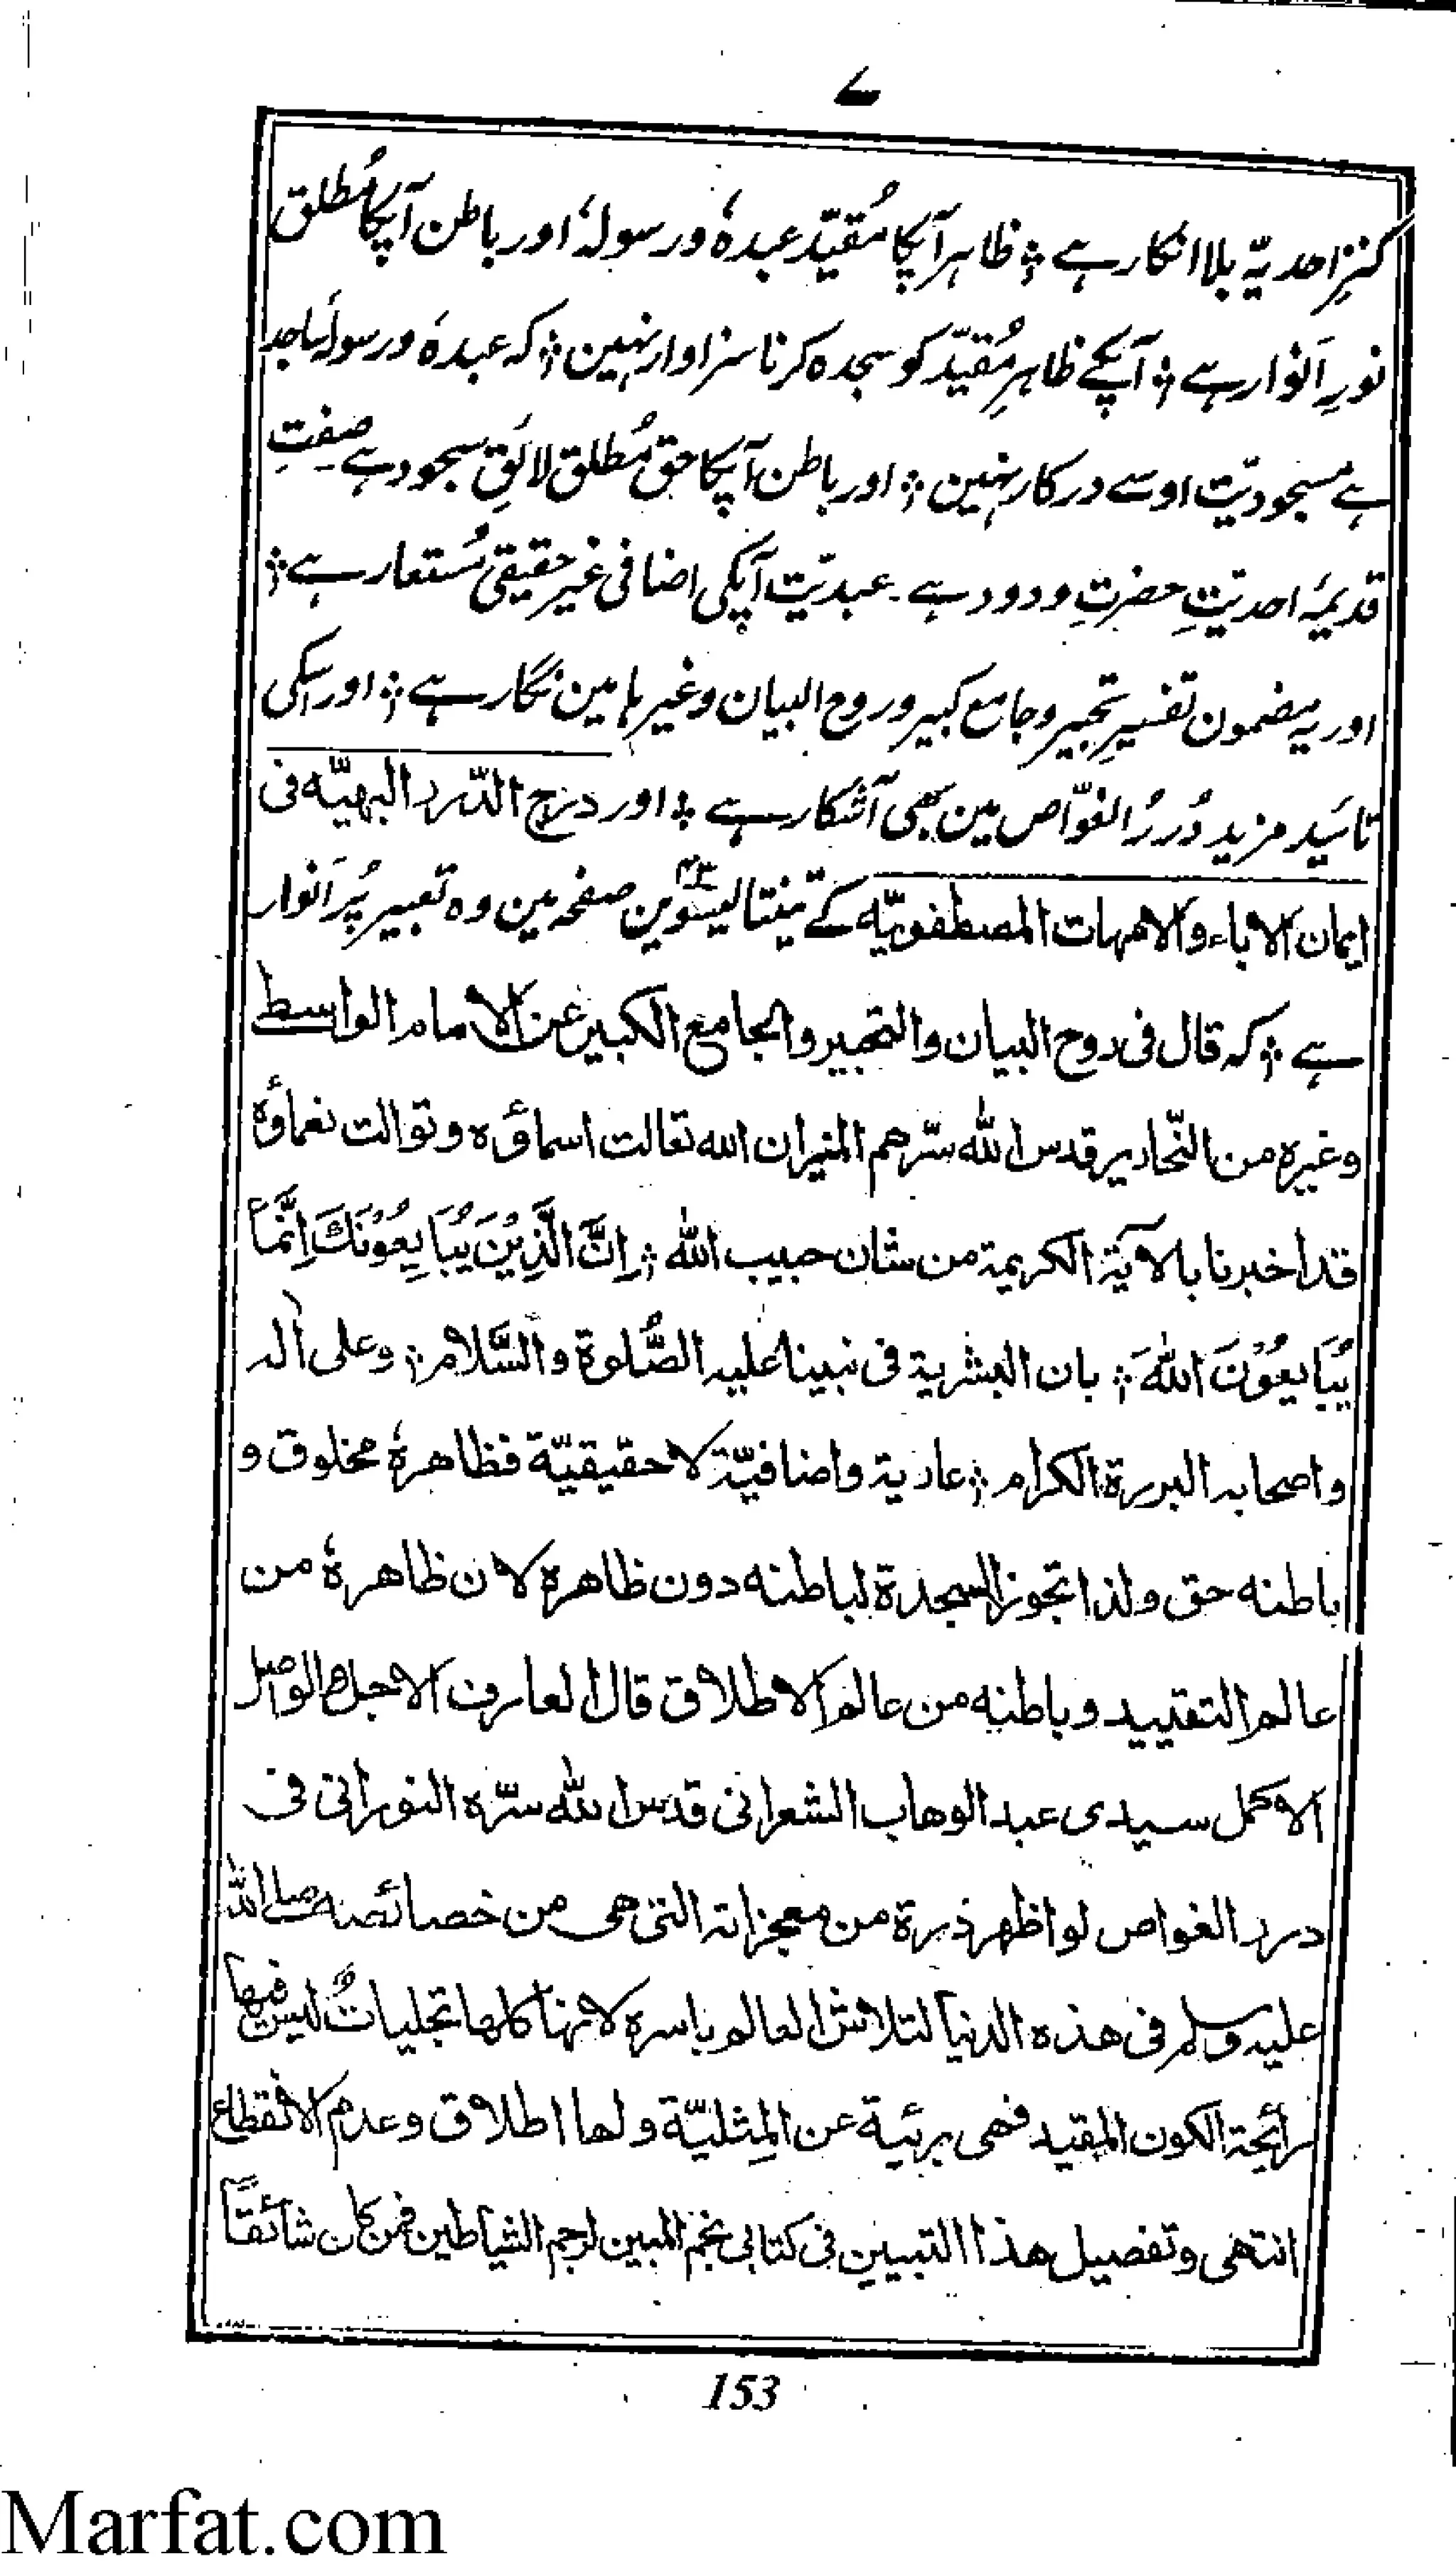 ۷
کنزِ احدیّہ بلا انکار ہے ؛ ظاہر آپکا مُقیّد عبدہٗ ورسولہٗ اور باطن آپکا مُطلق
نورِ اَنوار ہے ؛ آپکے ظاہرِ مُقیّد کو سجدہ کرنا سزاوار نہین ؛ کہ عبدہٗ ورسولہٗ ساجد
ہے مسجودیّت اوسے درکار نہین ؛ اور باطن آپکا حق مُطلق لائقِ سجود ہے۔ صفتِ
قدیمۂ احدیّتِ حضرتِ ودود ہے۔ عبدیّت آپکی اضافی غیر حقیقی مُستعار ہے ؛
اور یہ مضمون تفسیرِ تحبیر وجامع کبیر وروح البیان وغیرہا مین نگار ہے ؛ اور اسکی
تائید مزید دُررُ الغوّاص مین بھی آشکار ہے ؛ اور درج الدّرر البہیّہ فی
ایمان الاباء والامہات المصطفویّہ کے تینتالیسوین ۴۳ صفحہ مین وہ تعبیر پُر اَنوار
ہے ؛ کہ قال فی روح البیان والتحبیر والجامع الکبیر عن الامام الواسطے
وغیرہ من النّحاریر قدس اللہ سرّھم المنیر ان اللہ تعالت اسماؤہ وتوالت نعماؤہ
قد اخبرنا بالآیۃ الکریمۃ من شان حبیب اللہ ؛ اِنَّ الَّذِیْنَ یُبَایِعُوْنَكَ اِنَّمَا
یُبَایِعُوْنَ اللّٰہَ ؛ بان البشریۃ فی نبینا علیہ الصَّلوۃ والسَّلام ؛ وعلی آلہ
واصحابہ البررۃ الکرام ؛ عاریۃ واضافیّۃ لا حقیقیّۃ فظاھرہٗ مخلوق و
باطنہ حق ولذا تجوز السجدۃ لباطنہ دون ظاھرہ لان ظاھرہٗ من
عالم التقیید وباطنہ من عالم الاطلاق قال العارف الاجل الواصل
الاکمل سیدی عبد الوھاب الشعرانی قدس اللہ سرّہ النورانی فی
درر الغواص لو اظھر ذرۃ من معجزاتہ التی ھی من خصائصہ صلے اللہ
علیہ وسلم فی ھذہ الدنیا لتلاش العالم باسرہ لانھا کلھا تجلیاتٌ لیس فیھا
رائحۃ الکون المقید فھی بریئۃ عن المِثلیّۃ ولھا اطلاق وعدم الانقطاع
انتھی وتفصیل ھذا التبیین فی کتابی نجم المبین لرجم الشیاطین فمن کان شائقاً
153
Marfat.com